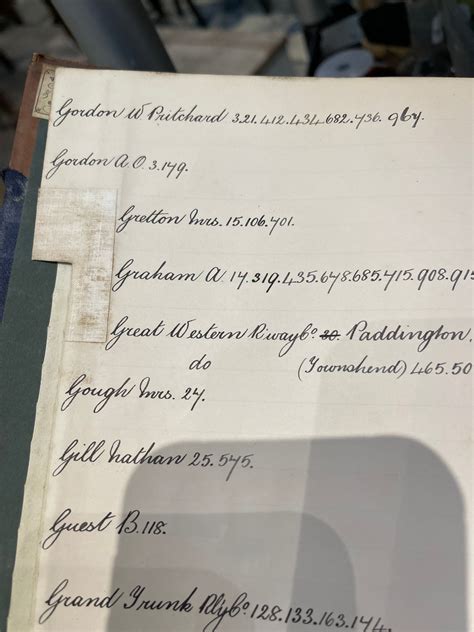 Gordon W Pritchard 3.21.412.434.682.736.964.
Gordon A.O. 3.179.
Gretton Mrs. 15.106.701.
Graham A. 17.319.435.678.685.715.908.915
Great Western R'way Co. 30. Paddington.
do (Townshend) 465.50
Gough Mrs. 27.
Gill Nathan 25.575.
Guest B. 118.
Grand Trunk Rly Co. 128.133.163.174.